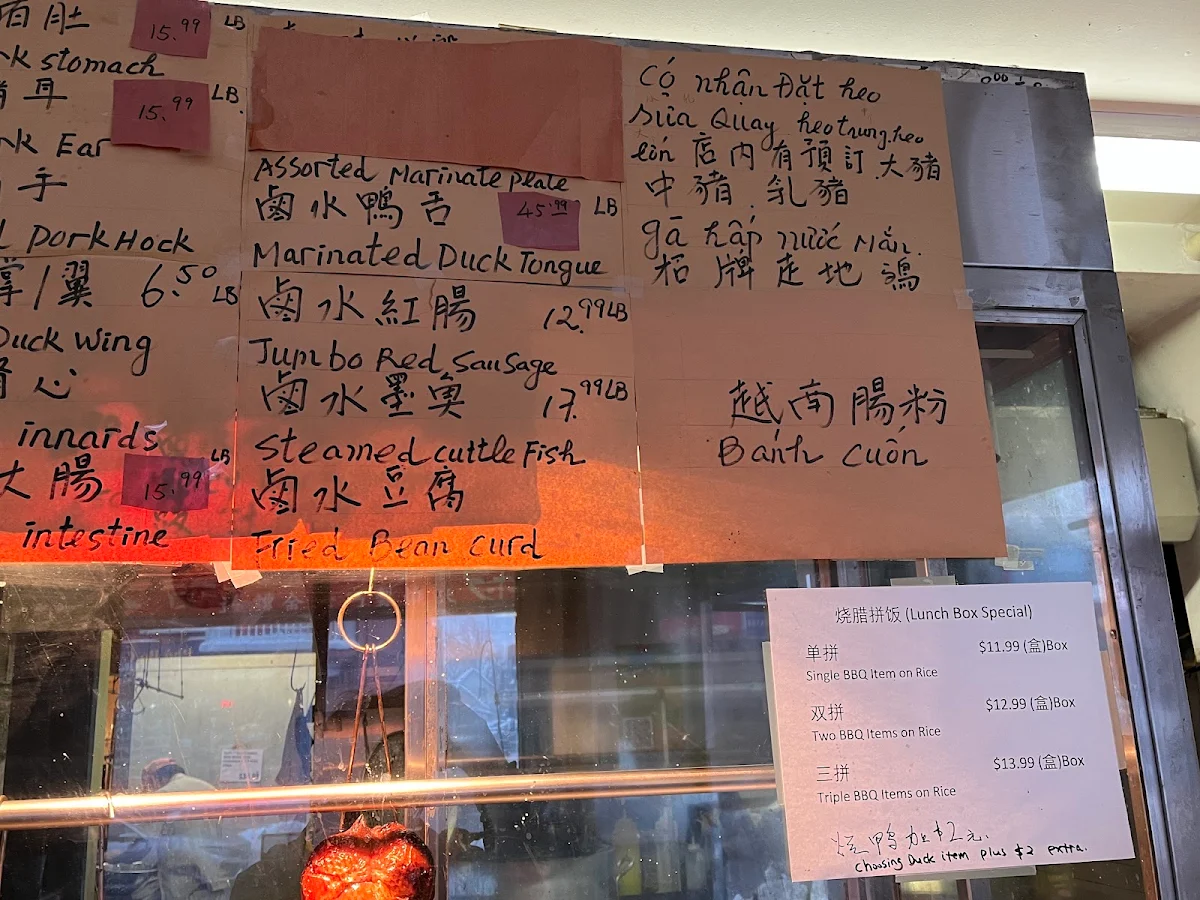 肚 15.99 LB
stomach
耳 15.99 LB
Ear
手
Pork Hock
掌/翼 6.50 LB
Duck Wing
心
innards
大腸 15.99 LB
intestine
Assorted Marinate plate
鹵水鴨舌 45.99 LB
Marinated Duck Tongue
鹵水紅腸 12.99 LB
Jumbo Red Sausage
鹵水墨魚 17.99 LB
Steamed cuttle Fish
鹵水豆腐
Fried Bean curd
Có nhận Đặt heo
sữa Quay heo trung, heo
lớn 店內有預訂大豬
中豬 乳豬
gà hấp nước mắn.
招牌走地鷄
越南腸粉
Bánh cuốn
烧腊拼饭 (Lunch Box Special)
单拼 $11.99 (盒)Box
Single BBQ Item on Rice
双拼 $12.99 (盒)Box
Two BBQ Items on Rice
三拼 $13.99 (盒)Box
Triple BBQ Items on Rice
烧鸭加$2元.
choosing Duck item plus $2 extra.